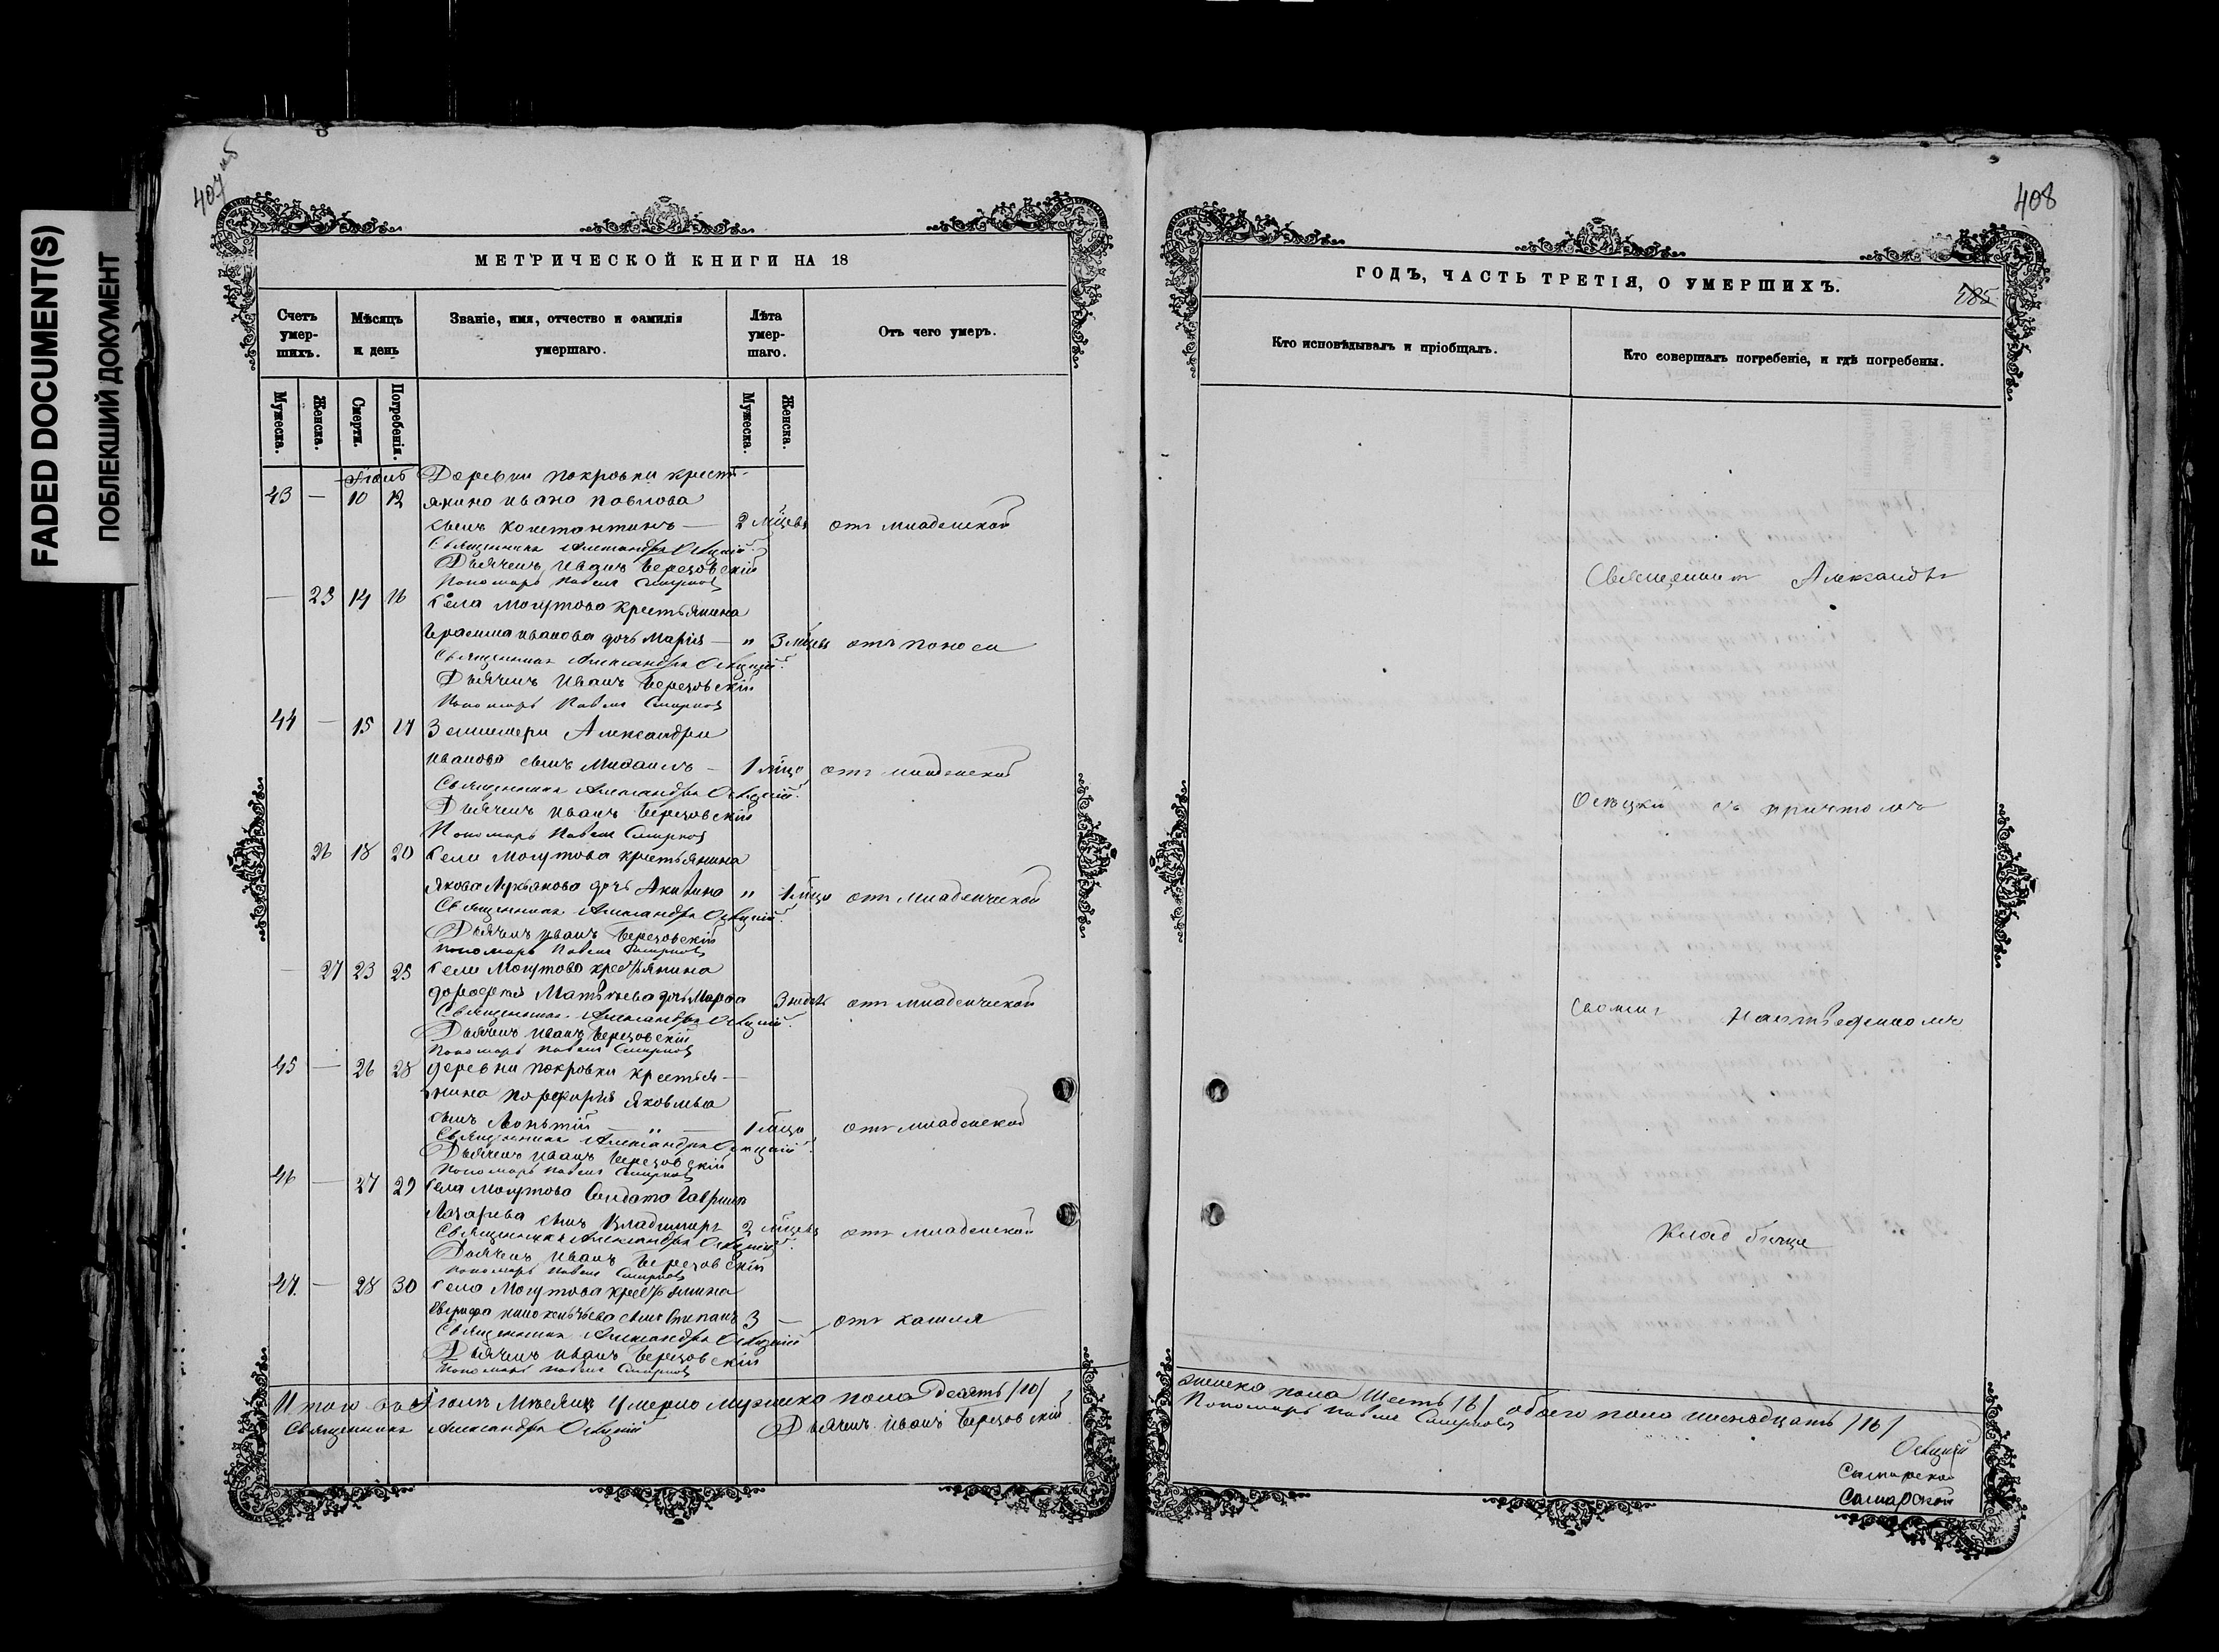 FADED DOCUMENT(S)
ПОБЛЕКШИЙ ДОКУМЕНТ
407 об
МЕТРИЧЕСКОЙ КНИГИ НА 18
Счетъ умер-шихъ.
Мѣсяцъ и день
Званіе, имя, отчество и фамилія умершаго.
Лѣта умер-шаго.
Отъ чего умеръ.
Мужеска.
Женска.
Смерти.
Погребенія.
Мужеска.
Женска.
Деревни покровки кресть-
43 — 10 12 янина ивана павлова
сынъ константинъ — 2 мѣсеца отъ младенской
Священникъ Александръ Осецкій
Дьячекъ Иванъ Березовскій
Пономарь Павелъ Смирнов
— 25 14 16 Села Могутова крестьянина
Герасима иванова дочь Марія — „ 3 мѣсеца отъ поноса
Священникъ Александръ Осецкій
Дьячекъ Иванъ Березовскій
Пономарь Павелъ Смирнов
44 — 15 17 Землемера Александра
иванова сынъ Михаилъ — 1 мѣсец отъ младенской
Священникъ Александръ Осецкій
Дьячекъ Иванъ Березовскій
Пономарь Павелъ Смирнов
26 18 20 Села Могутова крестьянина
Якова Лукьянова дочь Акилина „ 1 мѣсец отъ младенческой
Священникъ Александръ Осецкій
Дьячекъ Иванъ Березовскій
Пономарь Павелъ Смирнов
— 27 23 25 Села Могутова крестьянина
дорофея Матвеева дочь Марфа 3 недѣль отъ младенческой
Священникъ Александръ Осецкій
Дьячекъ Иванъ Березовскій
Пономарь Павелъ Смирнов
45 — 26 28 деревни покровки крестья-
нина порфирія Яковлева
сынъ Леонтій — „ — 1 мѣсец отъ младенской
Священникъ Александръ Осецкій
Дьячекъ Иванъ Березовскій
Пономарь Павелъ Смирнов
46 — 27 29 Села Могутова Солдата Гаврила
Лазарева сынъ Владимиръ 2 мѣсеца отъ младенской
Священникъ Александръ Осецкій
Дьячекъ Иванъ Березовскій
Пономарь Павелъ Смирнов
47. — 28 30 Села Могутова крестьянина
сынъ Степанъ 3 — отъ кашля
Священникъ Александръ Осецкій
Дьячекъ Иванъ Березовскій
Пономарь Павелъ Смирнов
Итого въ Іюлѣ Мѣсяцѣ Умерло мужеска пола десять /10/
Священникъ Александръ Осецкій Дьячекъ Иванъ Березовскій
408
ГОДЪ, ЧАСТЬ ТРЕТІЯ, О УМЕРШИХЪ.
785
Кто исповѣдывалъ и пріобщалъ.
Кто совершалъ погребеніе, и гдѣ погребены.
Священникъ Александръ
Осецкій съ причтомъ
своимъ на отведенномъ
кладбище
женска пола Шесть /6/ обоего пола шеснадцать /16/
Пономарь Павелъ Смирновъ
Осецкій
Самарской
Самарской